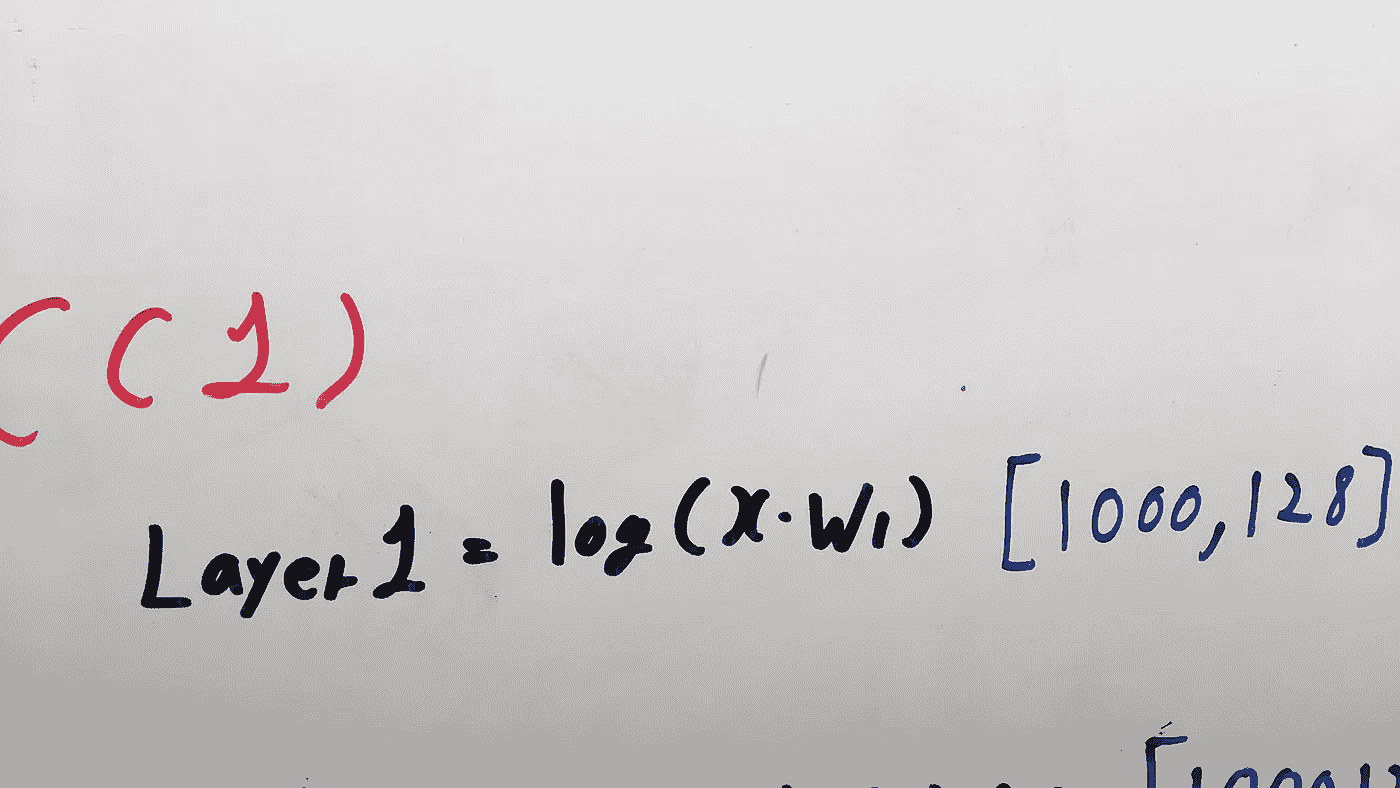 ( ( 1 )
Layer 1 = log(X·W1) [1000,128]